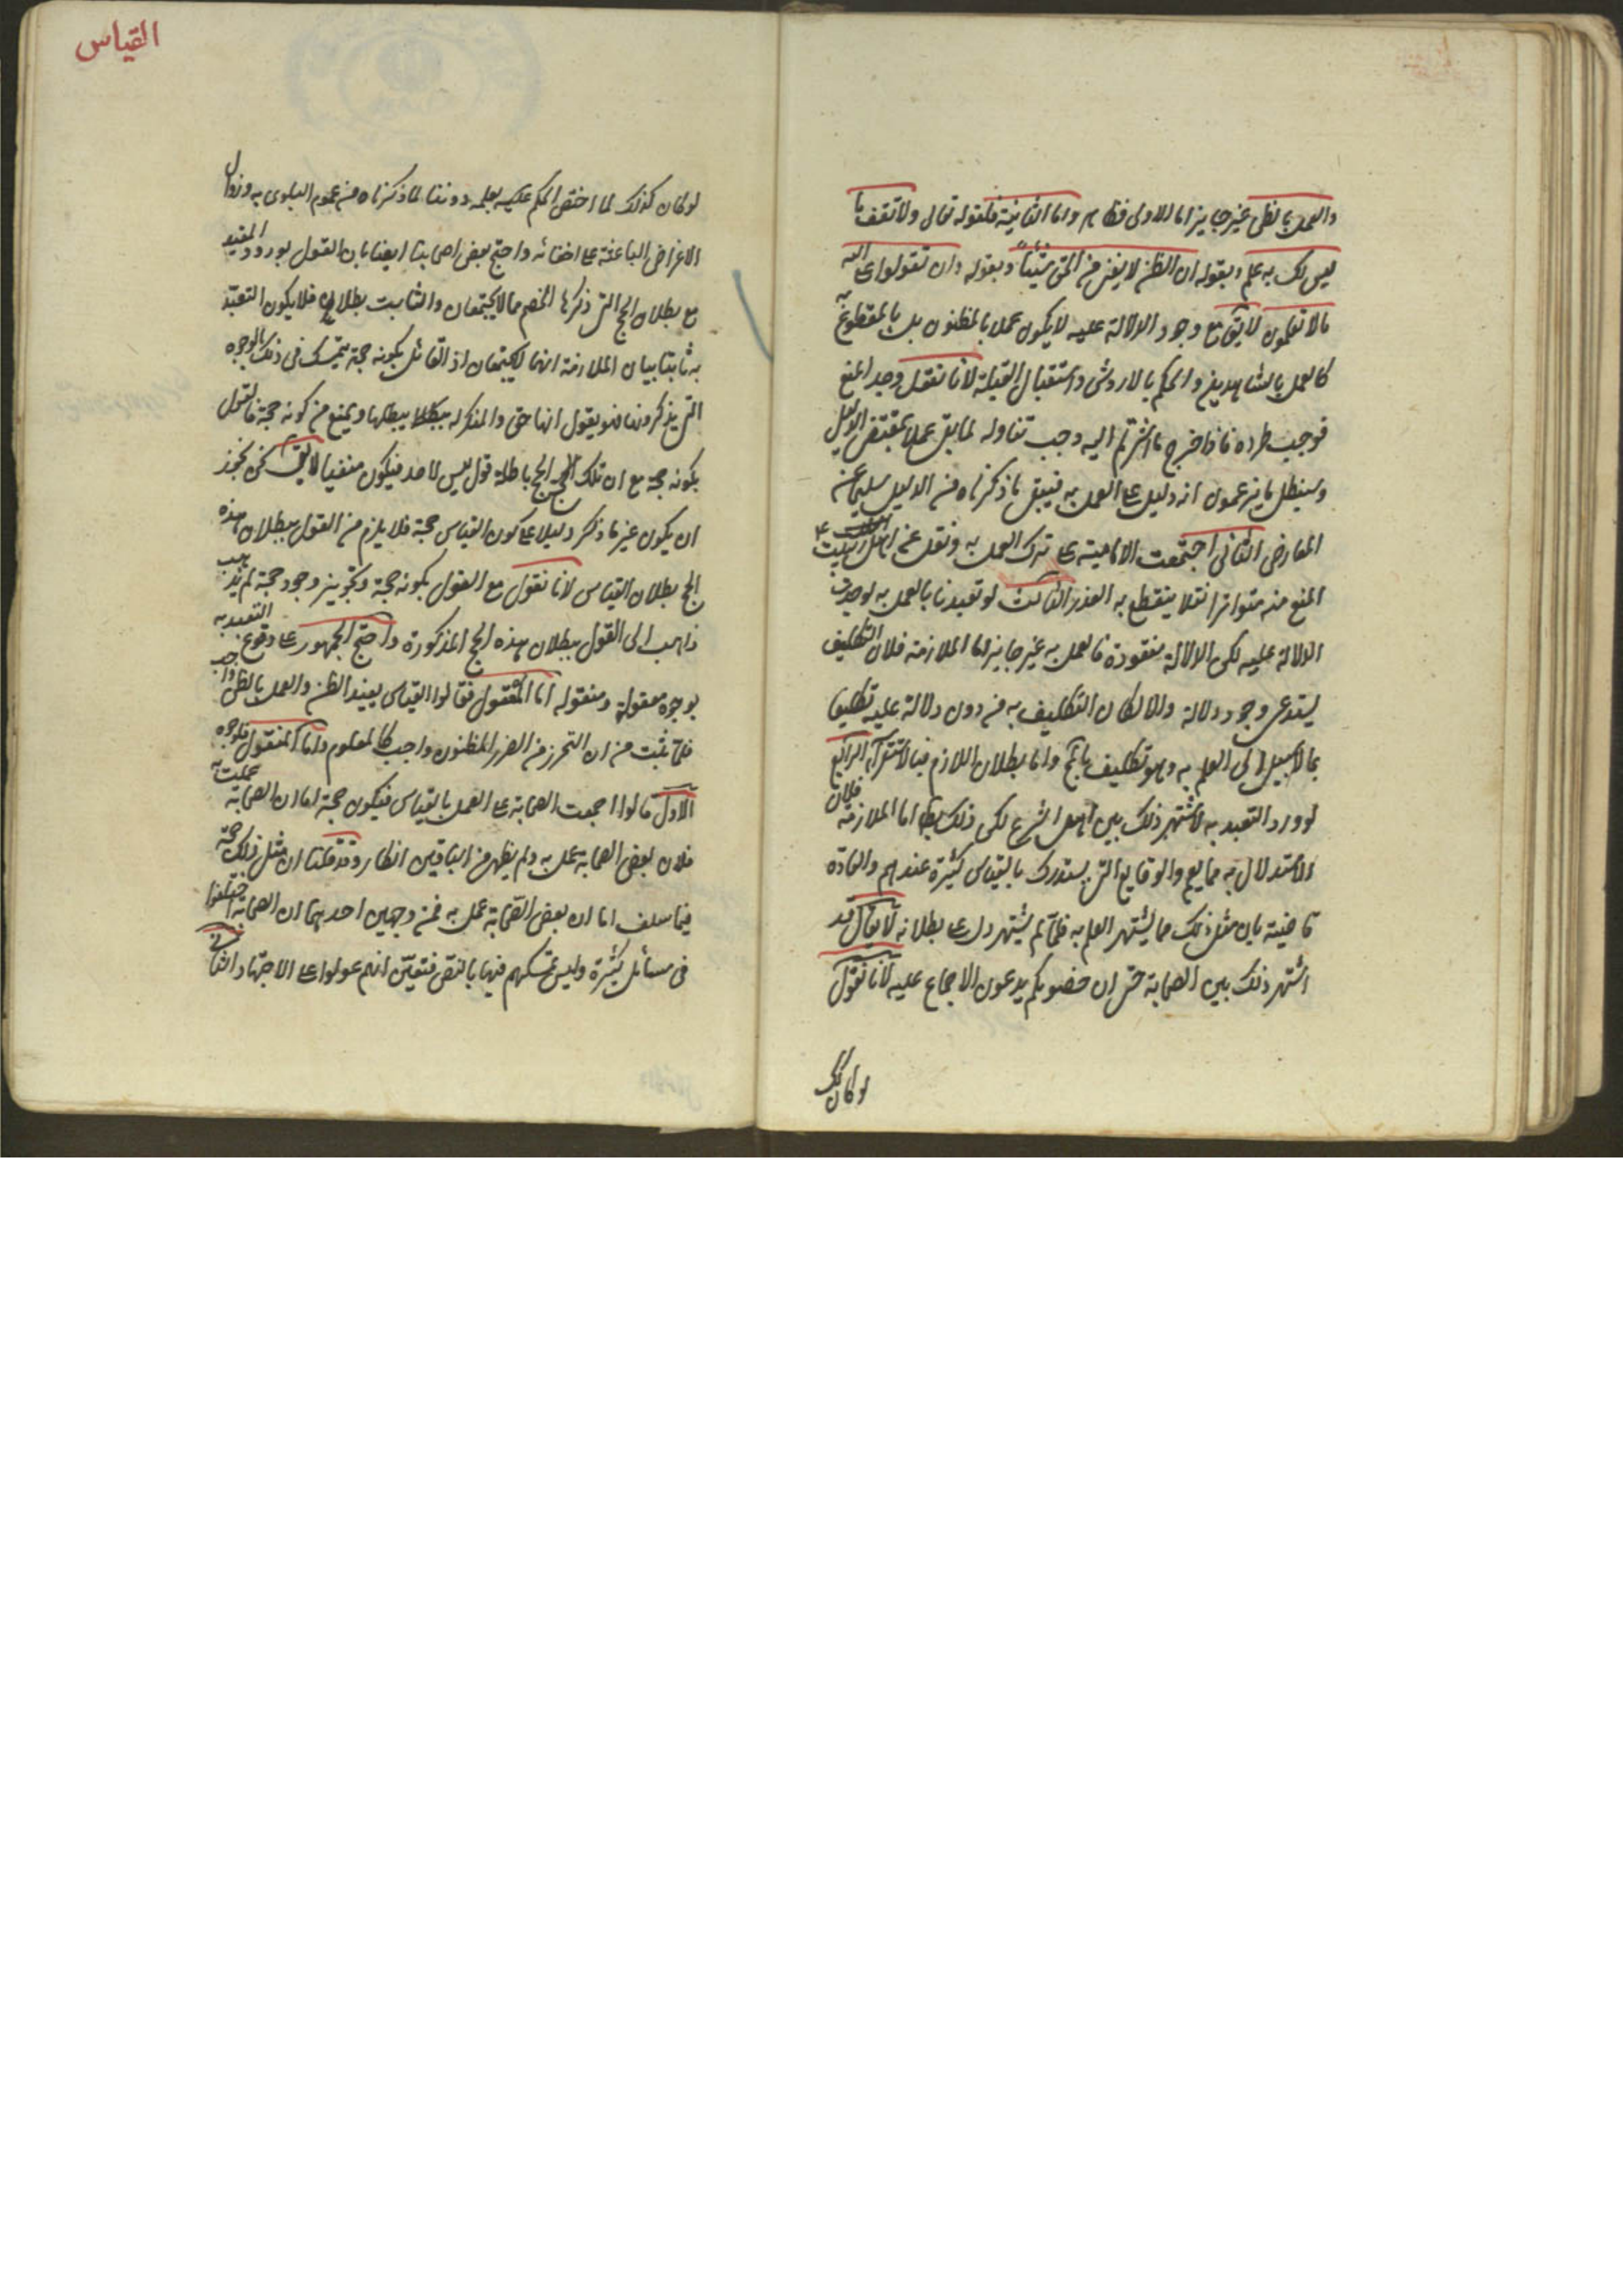 والعمل بالظن غير جايز اما الاولى فظاهر واما الثانية فلقوله تعالى ولا تقف ما
ليس لك به علم وبقوله ان الظن لا يغنى من الحق شيئاً وبقوله وان تقولوا على الله
مالا تعلمون لا يق مع وجود الدلالة عليه لا يكون عملا بالمظنون بل بالمقطوع به
كالعمل بالشاهدين والحكم بالاروش واستقبال القبلة لانا نقول وجد المنع
فوجب طرده فاذا خرج ما اشرتم اليه وجب تناوله لما بقى عملا بمقتضى الدليل
وسنبطل ما يزعمون انه دليل على العمل به فيبقى ما ذكرناه من الدليل سليما عن
المعارض الثانى اجتمعت الامامية على ترك العمل به ونقل عن اهل البيت ع
المنع منه متواترا نقلا ينقطع به العذر الثالث لو تعبدنا بالعمل به لوجدت
الدلالة عليه لكن الدلالة مفقودة فالعمل به غير جايز اما الملازمة فلان التكليف
يستدعى وجود دلالة والا لكان التكليف به من دون دلالة عليه تكليفا
بما لا سبيل الى العلم به وهو تكليف بالمح واما بطلان اللازم فبالاستقراء الرابع
لو ورد التعبد به لاشتهر ذلك بين اهل الشرع لكن ذلك بط اما الملازمة فلان
الاستدلال به مما يعم والوقايع التى يستدرك بالقياس كثيرة عندهم والعادة
قاضية بان مثل ذلك مما يشتهر العلم به فلما لم يشتهر دل على بطلانه لا يقال قد
اشتهر ذلك بين الصحابة حتى ان خصومكم يدعون الاجماع عليه لانا نقول
لو كان كك
القياس
لو كان كذلك لما اختص الحكم عليه بعلمه دوننا لما ذكرناه من عموم البلوى به وزوال
الاغراض الباعثة على اخفائه واحتج بعض اصحابنا ايضا بان القول بورود التعبد
مع بطلان الحجج التى ذكرها الخصم مما لا يجتمعان والثابت بطلان فلا يكون التعبد
به ثابتا بيان الملازمة انهما لا يجتمعان اذ القائل بكونه حجة يتمسك فى ذلك بالوجوه
التى يذكرونها فهو يقول انها حق والمنكر له يبطلها ويمنع من كونه حجة فالقول
بكونه حجة مع ان تلك الحجج باطلة قول ليس لاحد فيكون منفيا لا يق نحن نجوز
ان يكون غير ما ذكر دليلا على كون القياس حجة فلا يلزم من القول ببطلان هذه
الحجج بطلان القياس لانا نقول مع القول بكونه حجة وتجويز وجود حجة لم يذهب
ذاهب الى القول ببطلان هذه الحجج المذكورة واحتج الجمهور على وقوع التعبد به
بوجوه معقولة ومنقولة اما المعقول فقالوا القياس يفيد الظن والعمل بالظن واجب
فلما ثبت من ان التحرز من الضرر المظنون واجب كالمعلوم واما المنقول فلوجوه
الاول قالوا اجمعت الصحابة على العمل بالقياس فيكون حجة اما ان الصحابة عملت به
فلان بعض الصحابة عمل به ولم يظهر من الباقين انكار وقد قلنا ان مثل ذلك حجة
فيما سلف اما ان بعض الصحابة عمل به فمن وجهين احدهما ان الصحابة اختلفوا
فى مسائل كثيرة وليس تمسكهم فيها بالنص فتعين انهم عولوا على الاجتهاد الثانى